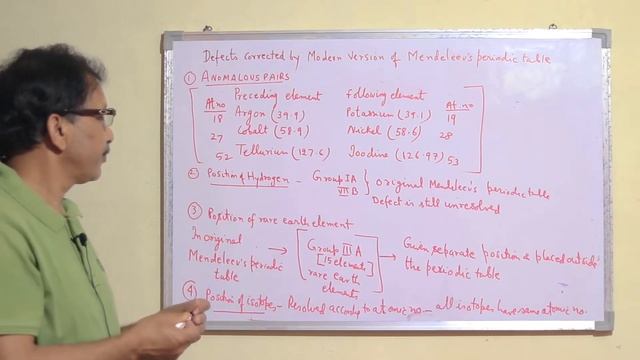 Defects corrected by Modern version of Mendeleev's periodic table
① ANOMALOUS PAIRS
Preceding element Following element
At.no At.no
18 Argon (39.9) Potassium (39.1) 19
27 Cobalt (58.9) Nickel (58.6) 28
52 Tellurium (127.6) Iodine (126.97) 53
② Position of Hydrogen - Group IA
VII B } original Mendeleev's periodic table
Defect is still unresolved
③ Position of rare earth element
In original Mendeleev's periodic table → Group III A [15 elements] rare earth elements → Given separate position & placed outside the periodic table
④ Position of isotopes - Resolved according to atomic no. - all isotopes have same atomic no.